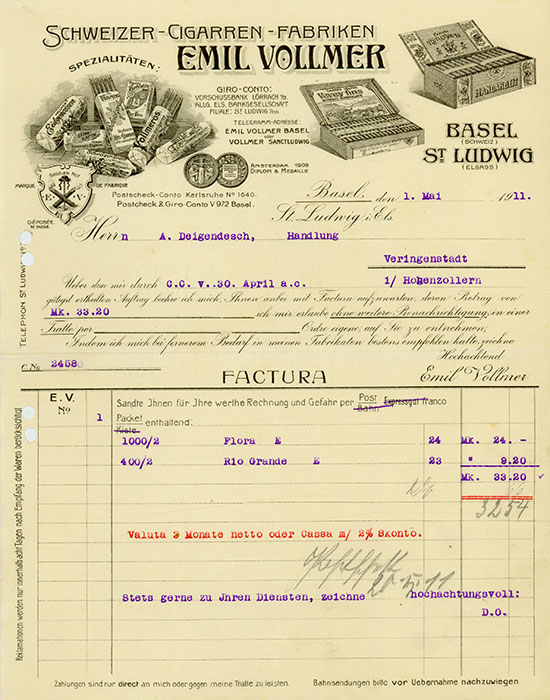 Schweizer-Cigarren-Fabriken
Emil Vollmer
Spezialitäten:
Giro-Conto:
Vorschussbank Lörrach i/B.
Allg. Els. Bankgesellschaft
Filiale: St Ludwig i/Els.
Telegramm-Adresse:
Emil Vollmer Basel
oder
Vollmer Sanctludwig
Handarbeit
Vollmeros
Basel
(Schweiz)
St Ludwig
(Elsass)
Amsterdam 1909
Diplom & Medaille
Marque de Fabrique
E V
Déposée
Postscheck-Conto Karlsruhe No 1640.
Postcheck & Giro Conto V 972 Basel.
Basel, den 1. Mai 1911.
St. Ludwig i. Els.
Telephon St Ludwig No
Herrn A. Deigendesch, Handlung
Veringenstadt
i/ Hohenzollern
Ueber den mir durch C.C. v..30. April a.c.
gütigst ertheilten Auftrag beehre ich mich, Ihnen anbei mit Factura aufzuwarten, deren Betrag von
Mk. 33.20 ich mir erlaube ohne weitere Benachrichtigung, in einer
Tratte per Ordre eigene, auf Sie zu entnehmen.
Indem ich mich bei fernerem Bedarf in meinen Fabrikaten bestens empfohlen halte, zeichne
Hochachtend
C. No 24580
Factura
Emil Vollmer
E.V.
No
Sandte Ihnen für Ihre werthe Rechnung und Gefahr per Post Bahn Expressgut franco
1 Packet Kiste enthaltend:
1000/2 Flora E 24 Mk. 24.-
400/2 Rio Grande E 23 " 9.20
Mk. 33.20
2%
32 54
Valuta 3 Monate netto oder Cassa m/ 2% Skonto.
20 VI 11
Stets gerne zu Jhren Diensten, zeichne hochachtungsvoll:
D.O.
Reklamationen werden nur innerhalb acht Tagen nach Empfang der Waren berücksichtigt
Zahlungen sind nur direkt an mich oder gegen meine Tratte zu leisten.
Bahnsendungen bitte vor Uebernahme nachzuwiegen